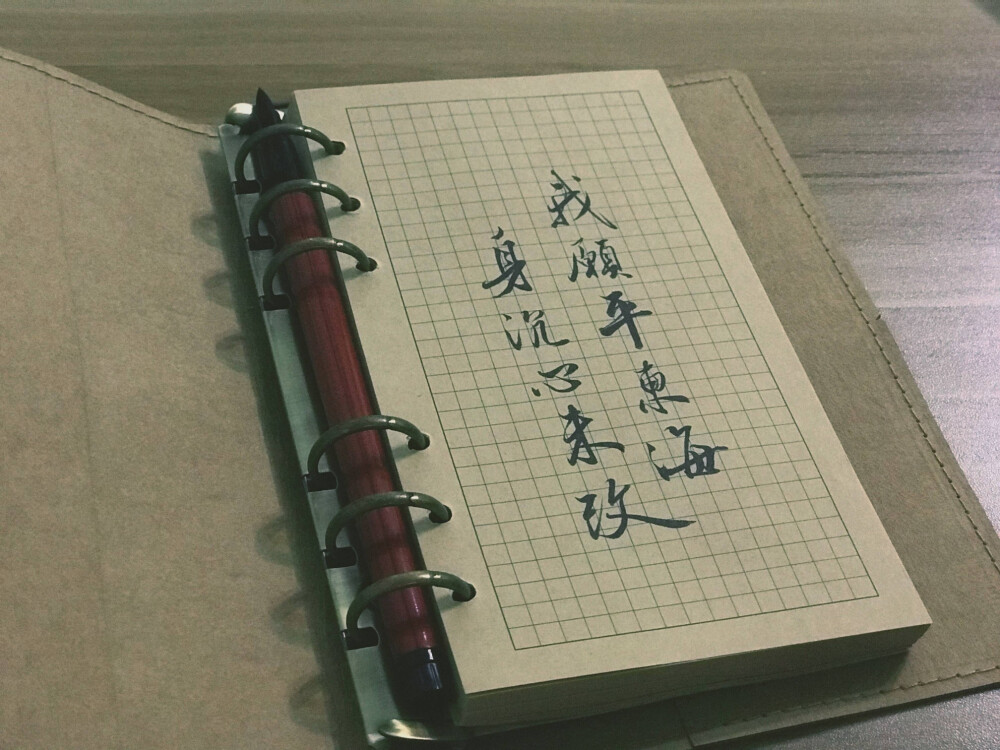 我願平東海
身沉心未改